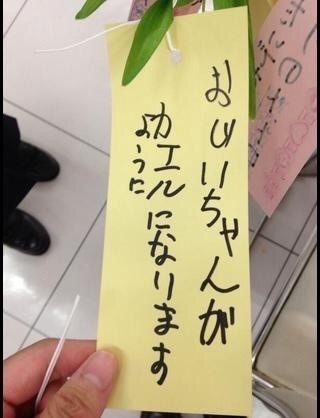 おじいちゃんが
カエルになります
ように